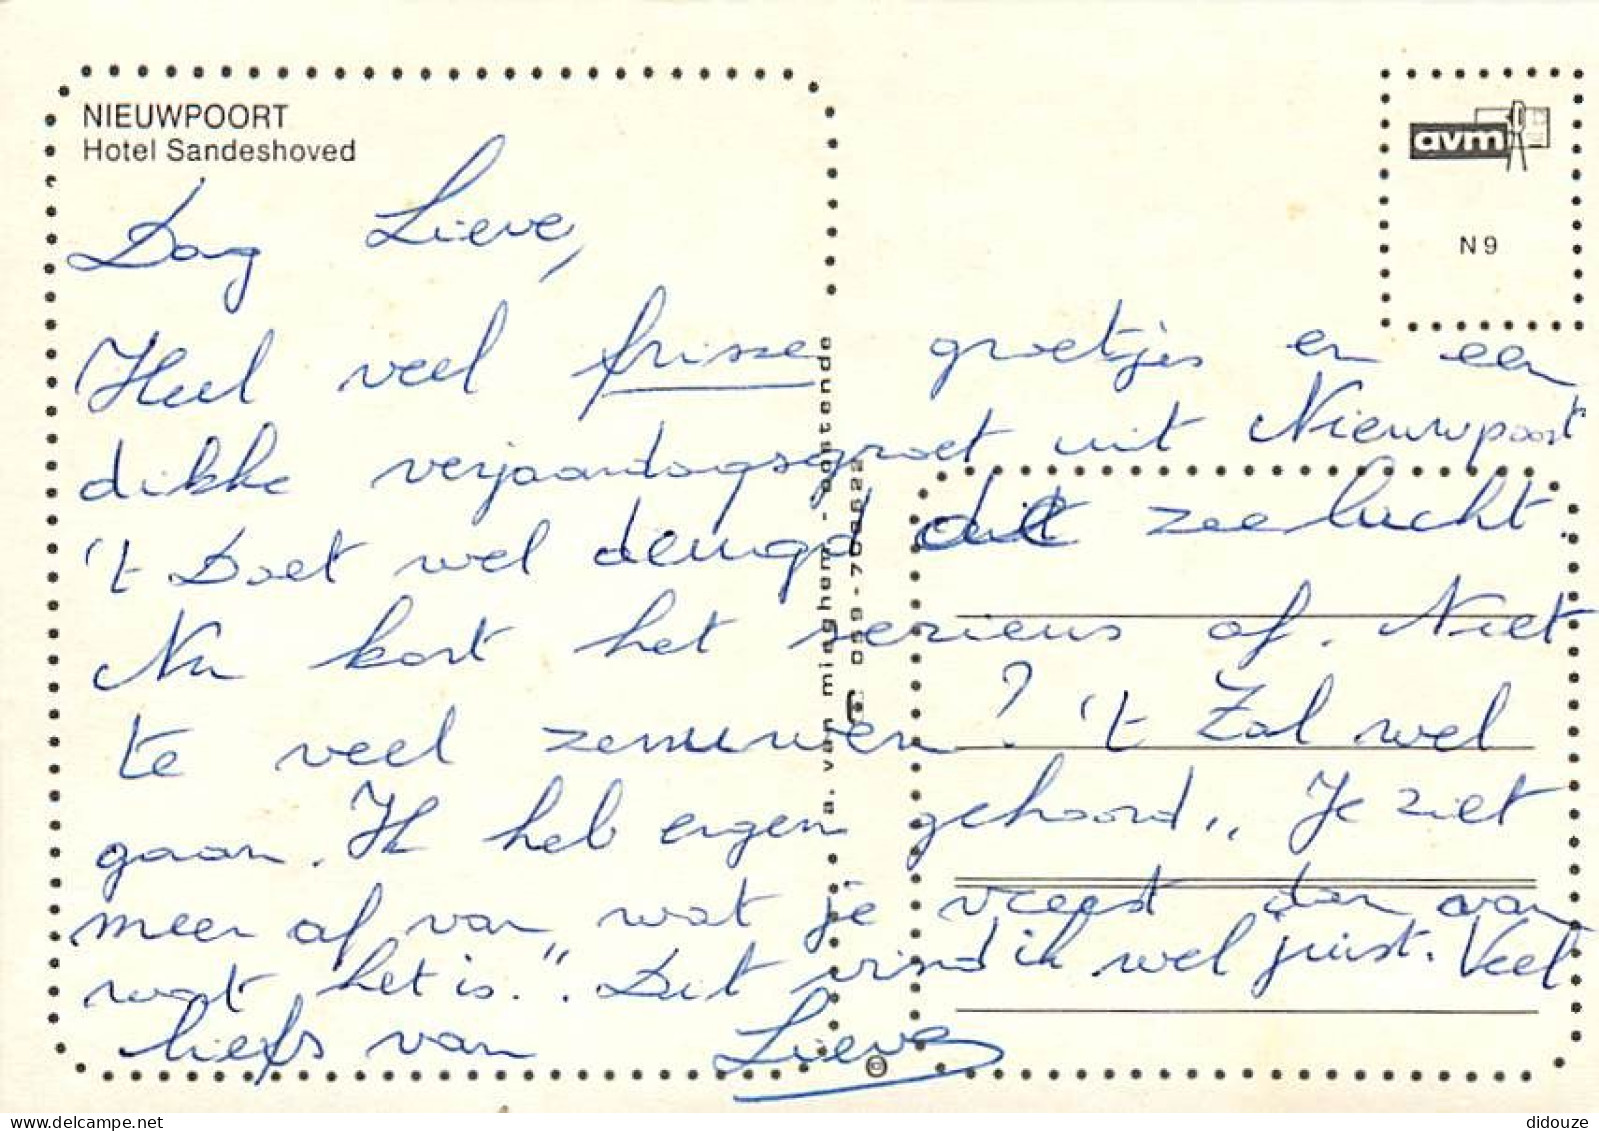 NIEUWPOORT
Hotel Sandeshoved
avm
N 9
a. van mieghem - oostende
Dag Lieve,
Heel veel frisse groetjes en een
dikke verjaardagsgroet uit Nieuwpoort
't Doet wel deugd die zeelucht.
Nu kort het serieus af. Niet
te veel zenuwen? 't Zal wel
gaan. Ik heb ergen gehoord „ Je ziet
meer af van wat je vreest dan van
wat het is.". Dit vind ik wel juist. Veel
liefs van Lieve
didouze / delcampe.net